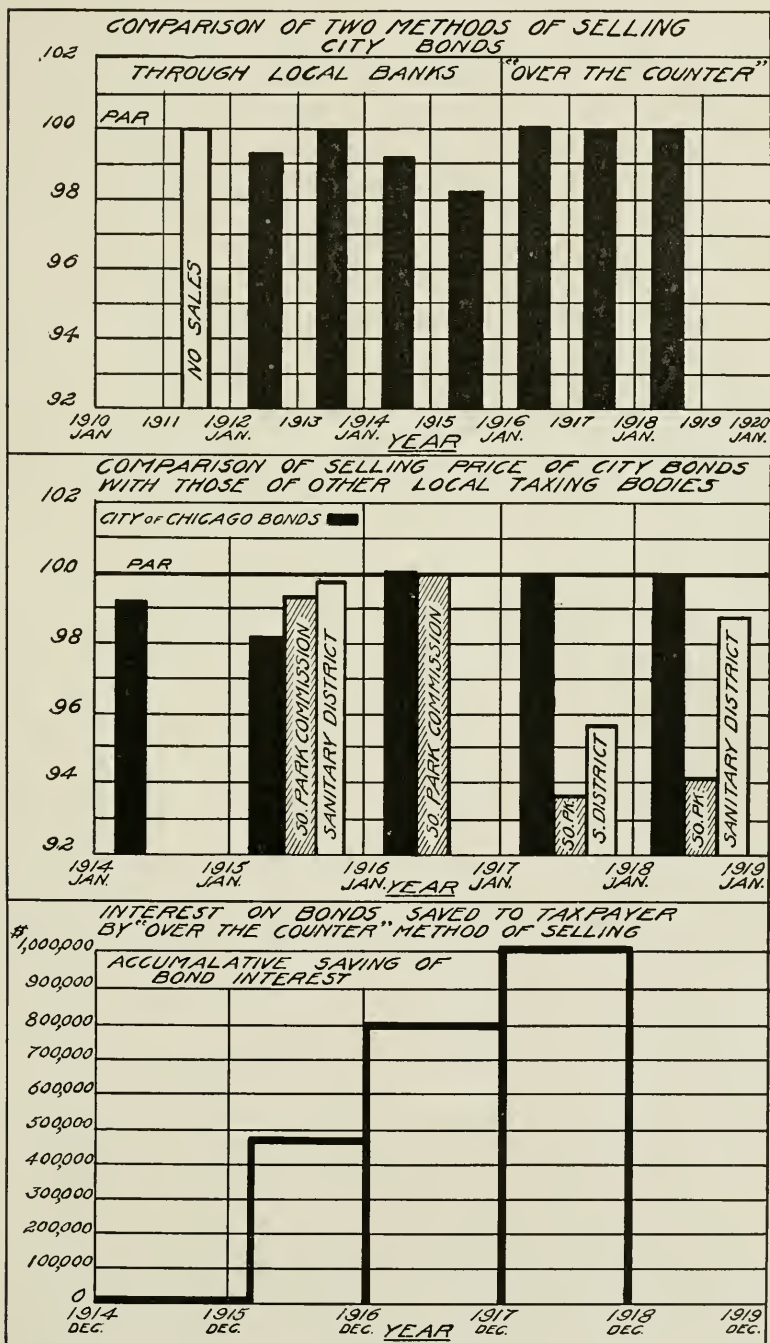 COMPARISON OF TWO METHODS OF SELLING
CITY BONDS
THROUGH LOCAL BANKS
"OVER THE COUNTER"
102
PAR
100
98
96
94
92
NO SALES
1910 JAN
1911
1912 JAN.
1913
1914 JAN.
1915
1916 JAN.
1917
1918 JAN.
1919
1920 JAN.
YEAR
COMPARISON OF SELLING PRICE OF CITY BONDS
WITH THOSE OF OTHER LOCAL TAXING BODIES
CITY OF CHICAGO BONDS
102
PAR
100
98
96
94
92
SO. PARK COMMISSION
SANITARY DISTRICT
SO. PARK COMMISSION
SO. PK.
S. DISTRICT
SO. PK.
SANITARY DISTRICT
1914 JAN.
1915 JAN.
1916 JAN.
1917 JAN.
1918 JAN.
1919 JAN.
YEAR
INTEREST ON BONDS SAVED TO TAXPAYER
BY "OVER THE COUNTER" METHOD OF SELLING
ACCUMALATIVE SAVING OF
BOND INTEREST
$1,000,000
900,000
800,000
700,000
600,000
500,000
400,000
300,000
200,000
100,000
0
1914 DEC.
1915 DEC.
1916 DEC.
1917 DEC.
1918 DEC.
1919 DEC.
YEAR